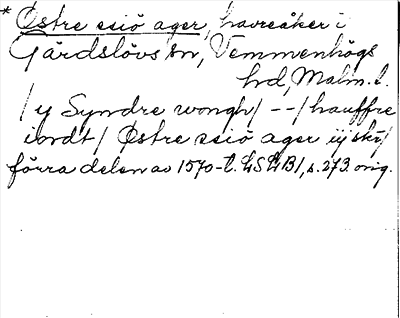 * Østre esiö ager, havreåker i
Gärdslövs sn, Vemmenhögs
hd, Malm. l.
/ y Syndre wongh / - - / hauffre
iordt / Østre esiö ager iij skr /
förra delen av 1570-t. LSLB1, s. 273. orig.